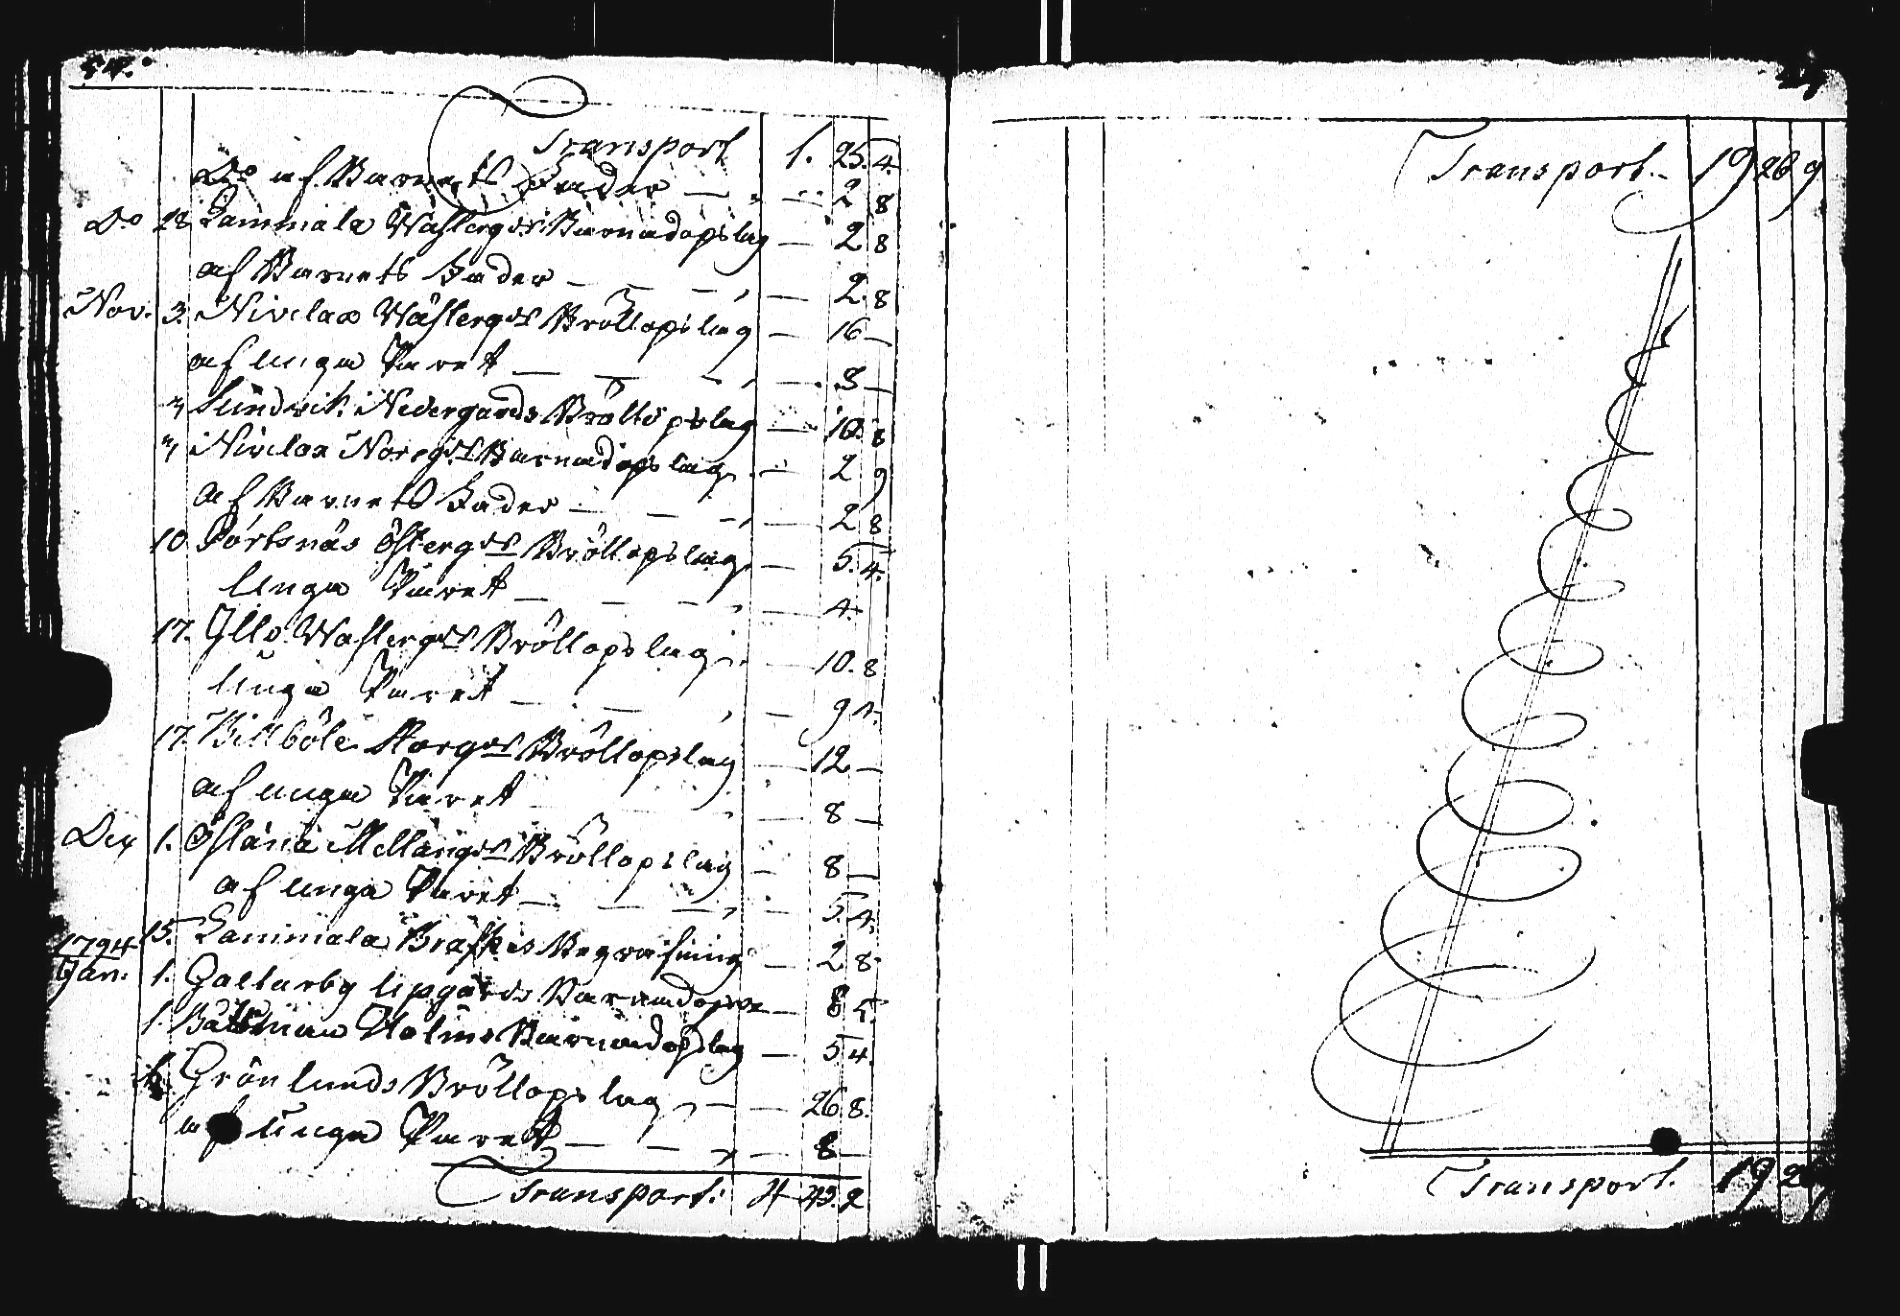 54.
Transport 1. 25. 4.
Do af Barnets Fader — " — 2 8
Do 28 Lammala Wästergds Barnadopslag — 2 8
af Barnets Fader — — — 2. 8
Nov. 3. Nivelax Wästergds Bröllopslag — 16 —
af unga Paret — — — 8 —
" Sundvik Nedergårds Bröllopslag — 10. 8
" Nivelax Norrgds Barnadopslag — 2 9
af Barnets Fader — — — 2 8
10 Pörtsnäs Östergds Bröllopslag — 5. 4.
Unga Paret — — — 4.
17. Gillo Wästergds Bröllopslag — 10. 8
unga Paret — — — 9 1.
17. Billböle Norgds Bröllopslag — 12 —
af unga Paret — 8 —
Dec 1. Mellangds Bröllopslag — 8 —
af unga Paret — — — 5. 4.
15. Lammala Bräskes Begrafning — 2 8
1794
Jan. 1. Galtarby Upgårds — 8 5.
1. Båtsman Holms Barnadopslag — 5 4.
Grönlunds Bröllopslag — 26. 8.
af unga Paret — — — 8 —
Transport: 4 43. 2
Transport. 19 28 9
Transport. 19